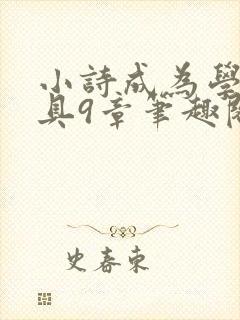 小詩成為學
具9章筆趣閣
史春東